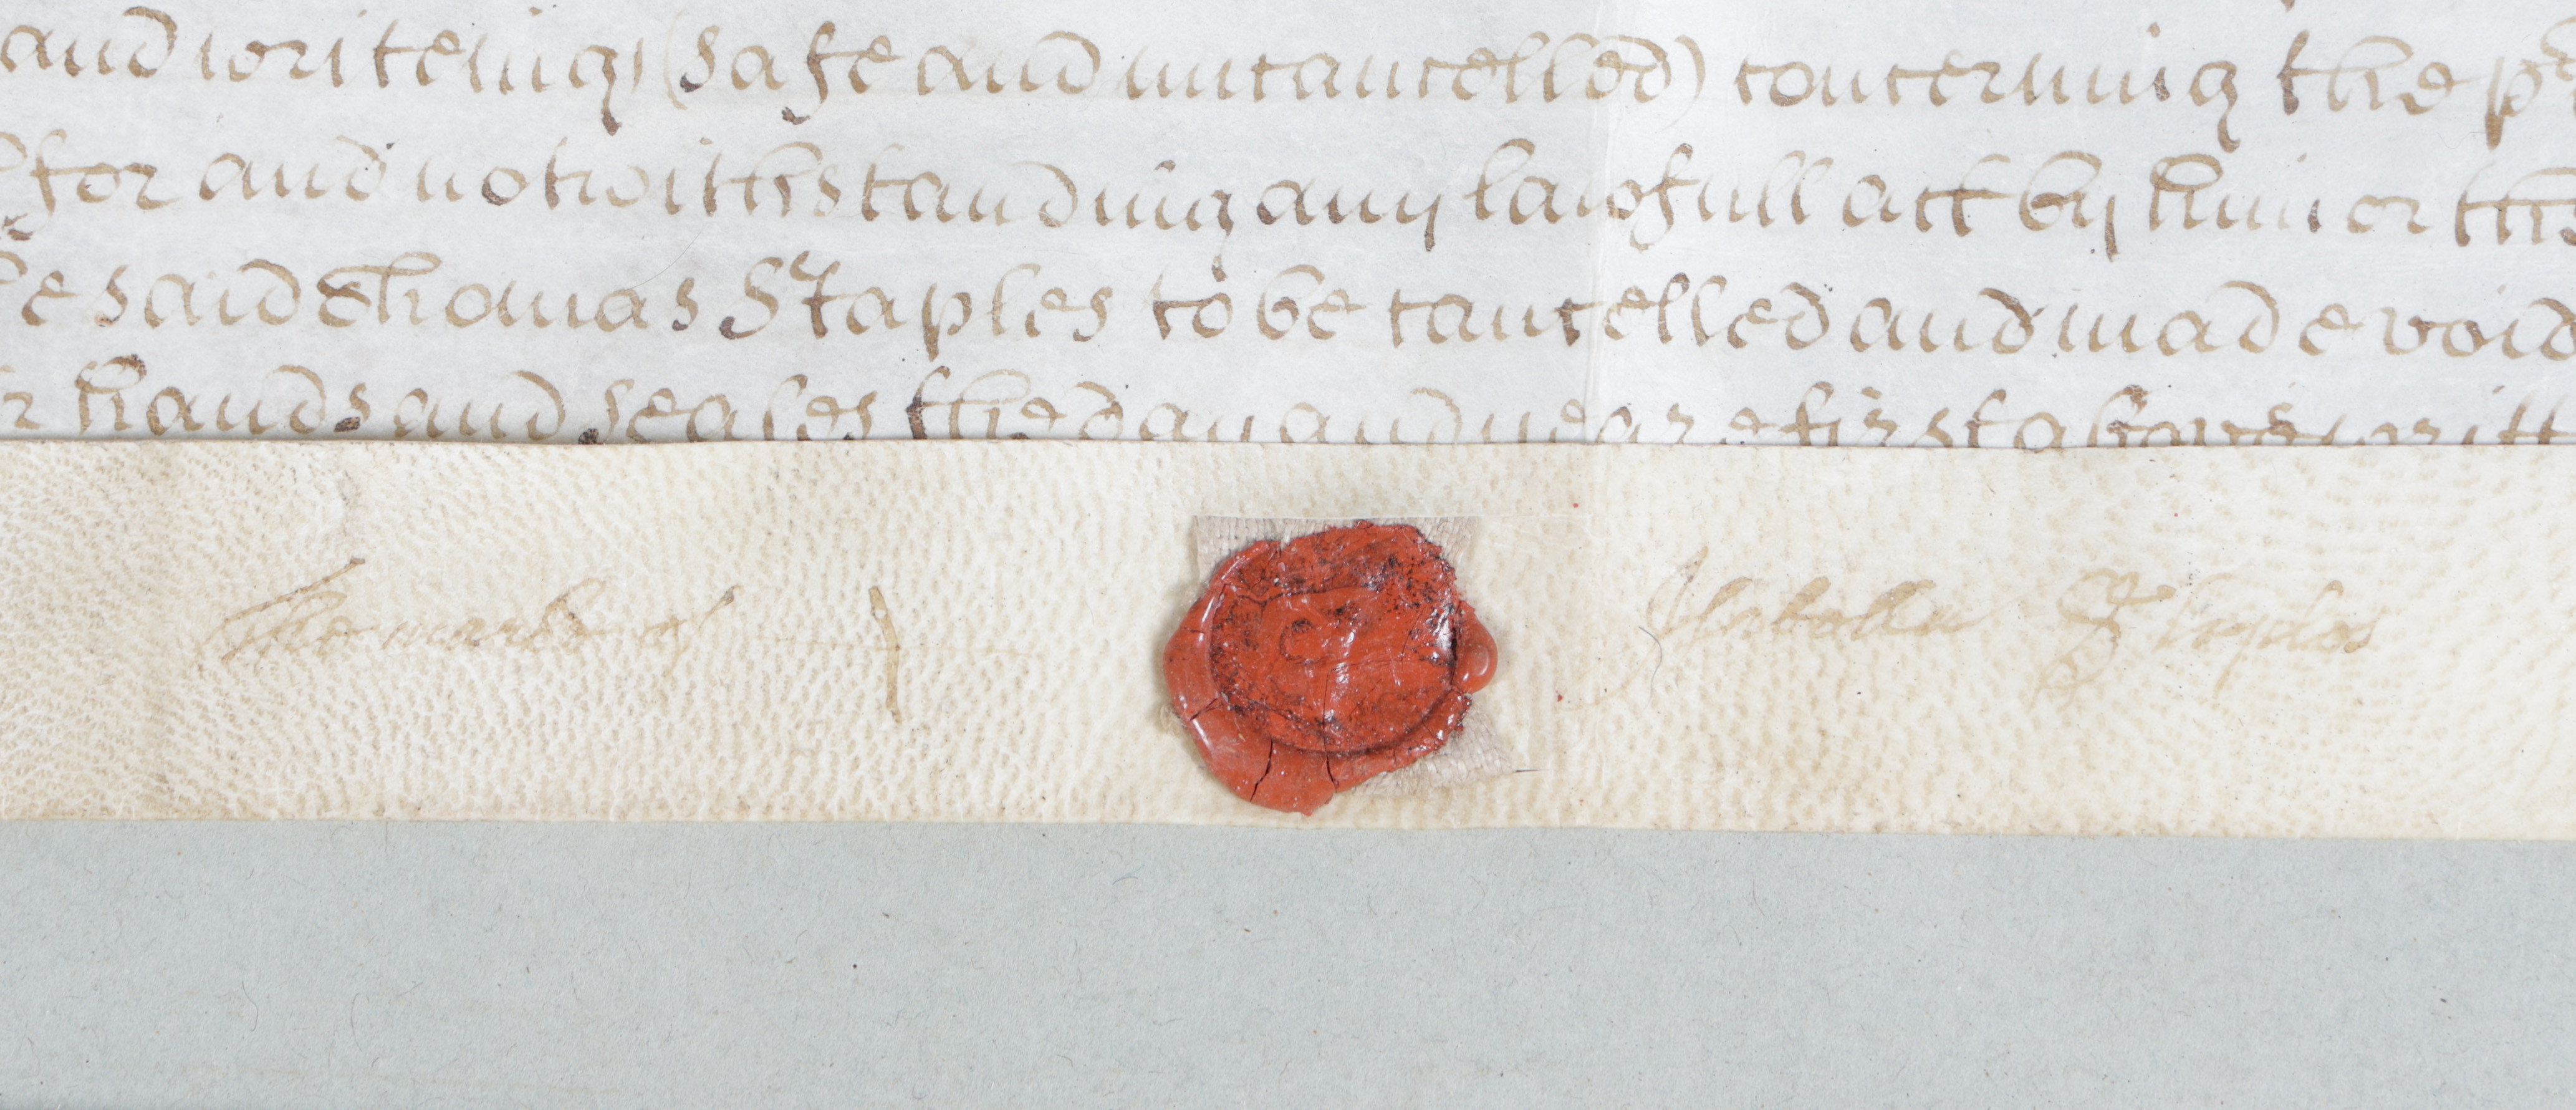 and writeings (safe and uncancelled) concerning the p
for and notwithstanding any lawfull act by him or
e said Thomas Staples to be cancelled and made void
r hands and seales the day and yeare first above writt
The marke of Isabella Staples